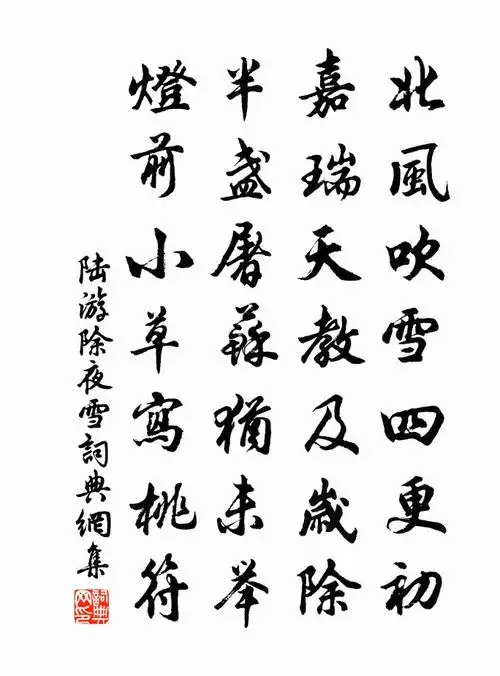 北風吹雪四更初
嘉瑞天教及歲除
半盞屠蘇猶未举
燈前小草寫桃符
陆游除夜雪詞典網集